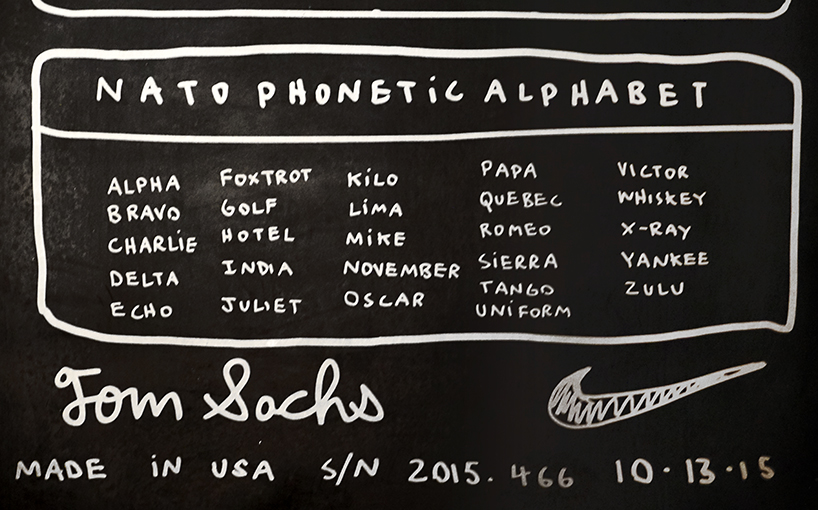 NATO PHONETiC ALPHABET
ALPHA
BRAVO
CHARLiE
DELTA
ECHO
FOXTROT
GOLF
HOTEL
INDIA
JULIET
KiLO
LiMA
MiKE
NOVEMBER
OSCAR
PAPA
QUEBEC
ROMEO
SiERRA
TANGO
UNiFORM
ViCTOR
WHiSKEY
X-RAY
YANKEE
ZULU
Tom Sachs
MADE iN USA S/N 2015.466 10·13·15